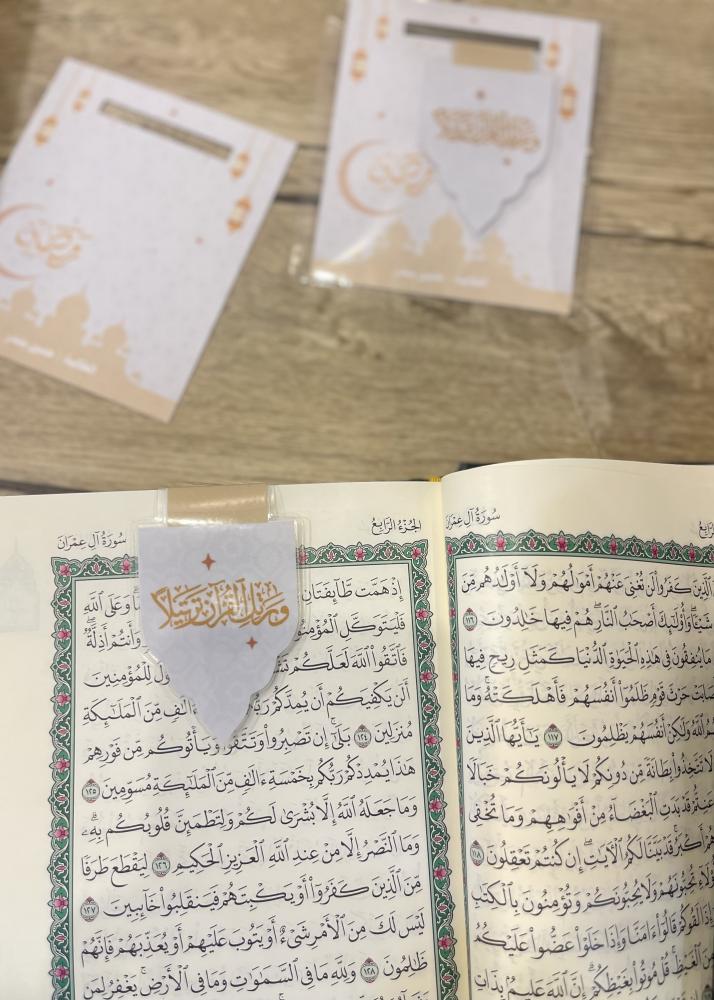 وَرَتِّلِ ٱلْقُرْآنَ تَرْتِيلًا
سُورَةُ آلِ عِمْرَانَ
ٱلَّذِينَ كَفَرُوا۟ لَن تُغْنِىَ عَنْهُمْ أَمْوَٰلُهُمْ وَلَآ أَوْلَٰدُهُم مِّنَ
شَيْـًٔا ۖ وَأُو۟لَٰٓئِكَ أَصْحَٰبُ ٱلنَّارِ ۚ هُمْ فِيهَا خَٰلِدُونَ ١١٦
مَا يُنفِقُونَ فِى هَٰذِهِ ٱلْحَيَوٰةِ ٱلدُّنْيَا كَمَثَلِ رِيحٍ فِيهَا
حَرْثَ قَوْمٍ ظَلَمُوٓا۟ أَنفُسَهُمْ فَأَهْلَكَتْهُ ۚ وَمَا
ٱللَّهُ وَلَٰكِنْ أَنفُسَهُمْ يَظْلِمُونَ ١١٧ يَٰٓأَيُّهَا ٱلَّذِينَ
لَا تَتَّخِذُوا۟ بِطَانَةً مِّن دُونِكُمْ لَا يَأْلُونَكُمْ خَبَالًا
عَنِتُّمْ قَدْ بَدَتِ ٱلْبَغْضَآءُ مِنْ أَفْوَٰهِهِمْ وَمَا تُخْفِى
أَكْبَرُ ۚ قَدْ بَيَّنَّا لَكُمُ ٱلْءَايَٰتِ ۖ إِن كُنتُمْ تَعْقِلُونَ ١١٨
تُحِبُّونَهُمْ وَلَا يُحِبُّونَكُمْ وَتُؤْمِنُونَ بِٱلْكِتَٰبِ
وَإِذَا لَقُوكُمْ قَالُوٓا۟ ءَامَنَّا وَإِذَا خَلَوْا۟ عَضُّوا۟ عَلَيْكُمُ
مِنَ ٱلْغَيْظِ ۚ قُلْ مُوتُوا۟ بِغَيْظِكُمْ ۗ إِنَّ ٱللَّهَ عَلِيمٌۢ بِذَاتِ
الجُزْءُ الرَّابِعُ
سُورَةُ آلِ عِمْرَانَ
إِذْ هَمَّت طَّآئِفَتَانِ وَعَلَى ٱللَّهِ
فَلْيَتَوَكَّلِ ٱلْمُؤْمِنُونَ وَأَنتُمْ أَذِلَّةٌ ۖ
فَٱتَّقُوا۟ ٱللَّهَ لَعَلَّكُمْ لِلْمُؤْمِنِينَ
أَلَن يَكْفِيَكُمْ أَن يُمِدَّكُمْ ءَالَٰفٍ مِّنَ ٱلْمَلَٰٓئِكَةِ
مُنزَلِينَ ١٢٤ بَلَىٰٓ ۚ إِن تَصْبِرُوا۟ وَتَتَّقُوا۟ وَيَأْتُوكُم مِّن فَوْرِهِمْ
هَٰذَا يُمْدِدْكُمْ رَبُّكُم بِخَمْسَةِ ءَالَٰفٍ مِّنَ ٱلْمَلَٰٓئِكَةِ مُسَوِّمِينَ ١٢٥
وَمَا جَعَلَهُ ٱللَّهُ إِلَّا بُشْرَىٰ لَكُمْ وَلِتَطْمَئِنَّ قُلُوبُكُم بِهِۦ ۗ
وَمَا ٱلنَّصْرُ إِلَّا مِنْ عِندِ ٱللَّهِ ٱلْعَزِيزِ ٱلْحَكِيمِ ١٢٦ لِيَقْطَعَ طَرَفًا
مِّنَ ٱلَّذِينَ كَفَرُوٓا۟ أَوْ يَكْبِتَهُمْ فَيَنقَلِبُوا۟ خَآئِبِينَ ١٢٧
لَيْسَ لَكَ مِنَ ٱلْأَمْرِ شَىْءٌ أَوْ يَتُوبَ عَلَيْهِمْ أَوْ يُعَذِّبَهُمْ فَإِنَّهُمْ
ظَٰلِمُونَ ١٢٨ وَلِلَّهِ مَا فِى ٱلسَّمَٰوَٰتِ وَمَا فِى ٱلْأَرْضِ ۚ يَغْفِرُ لِمَن
وَرَتِّلِ ٱلْقُرْآنَ تَرْتِيلًا